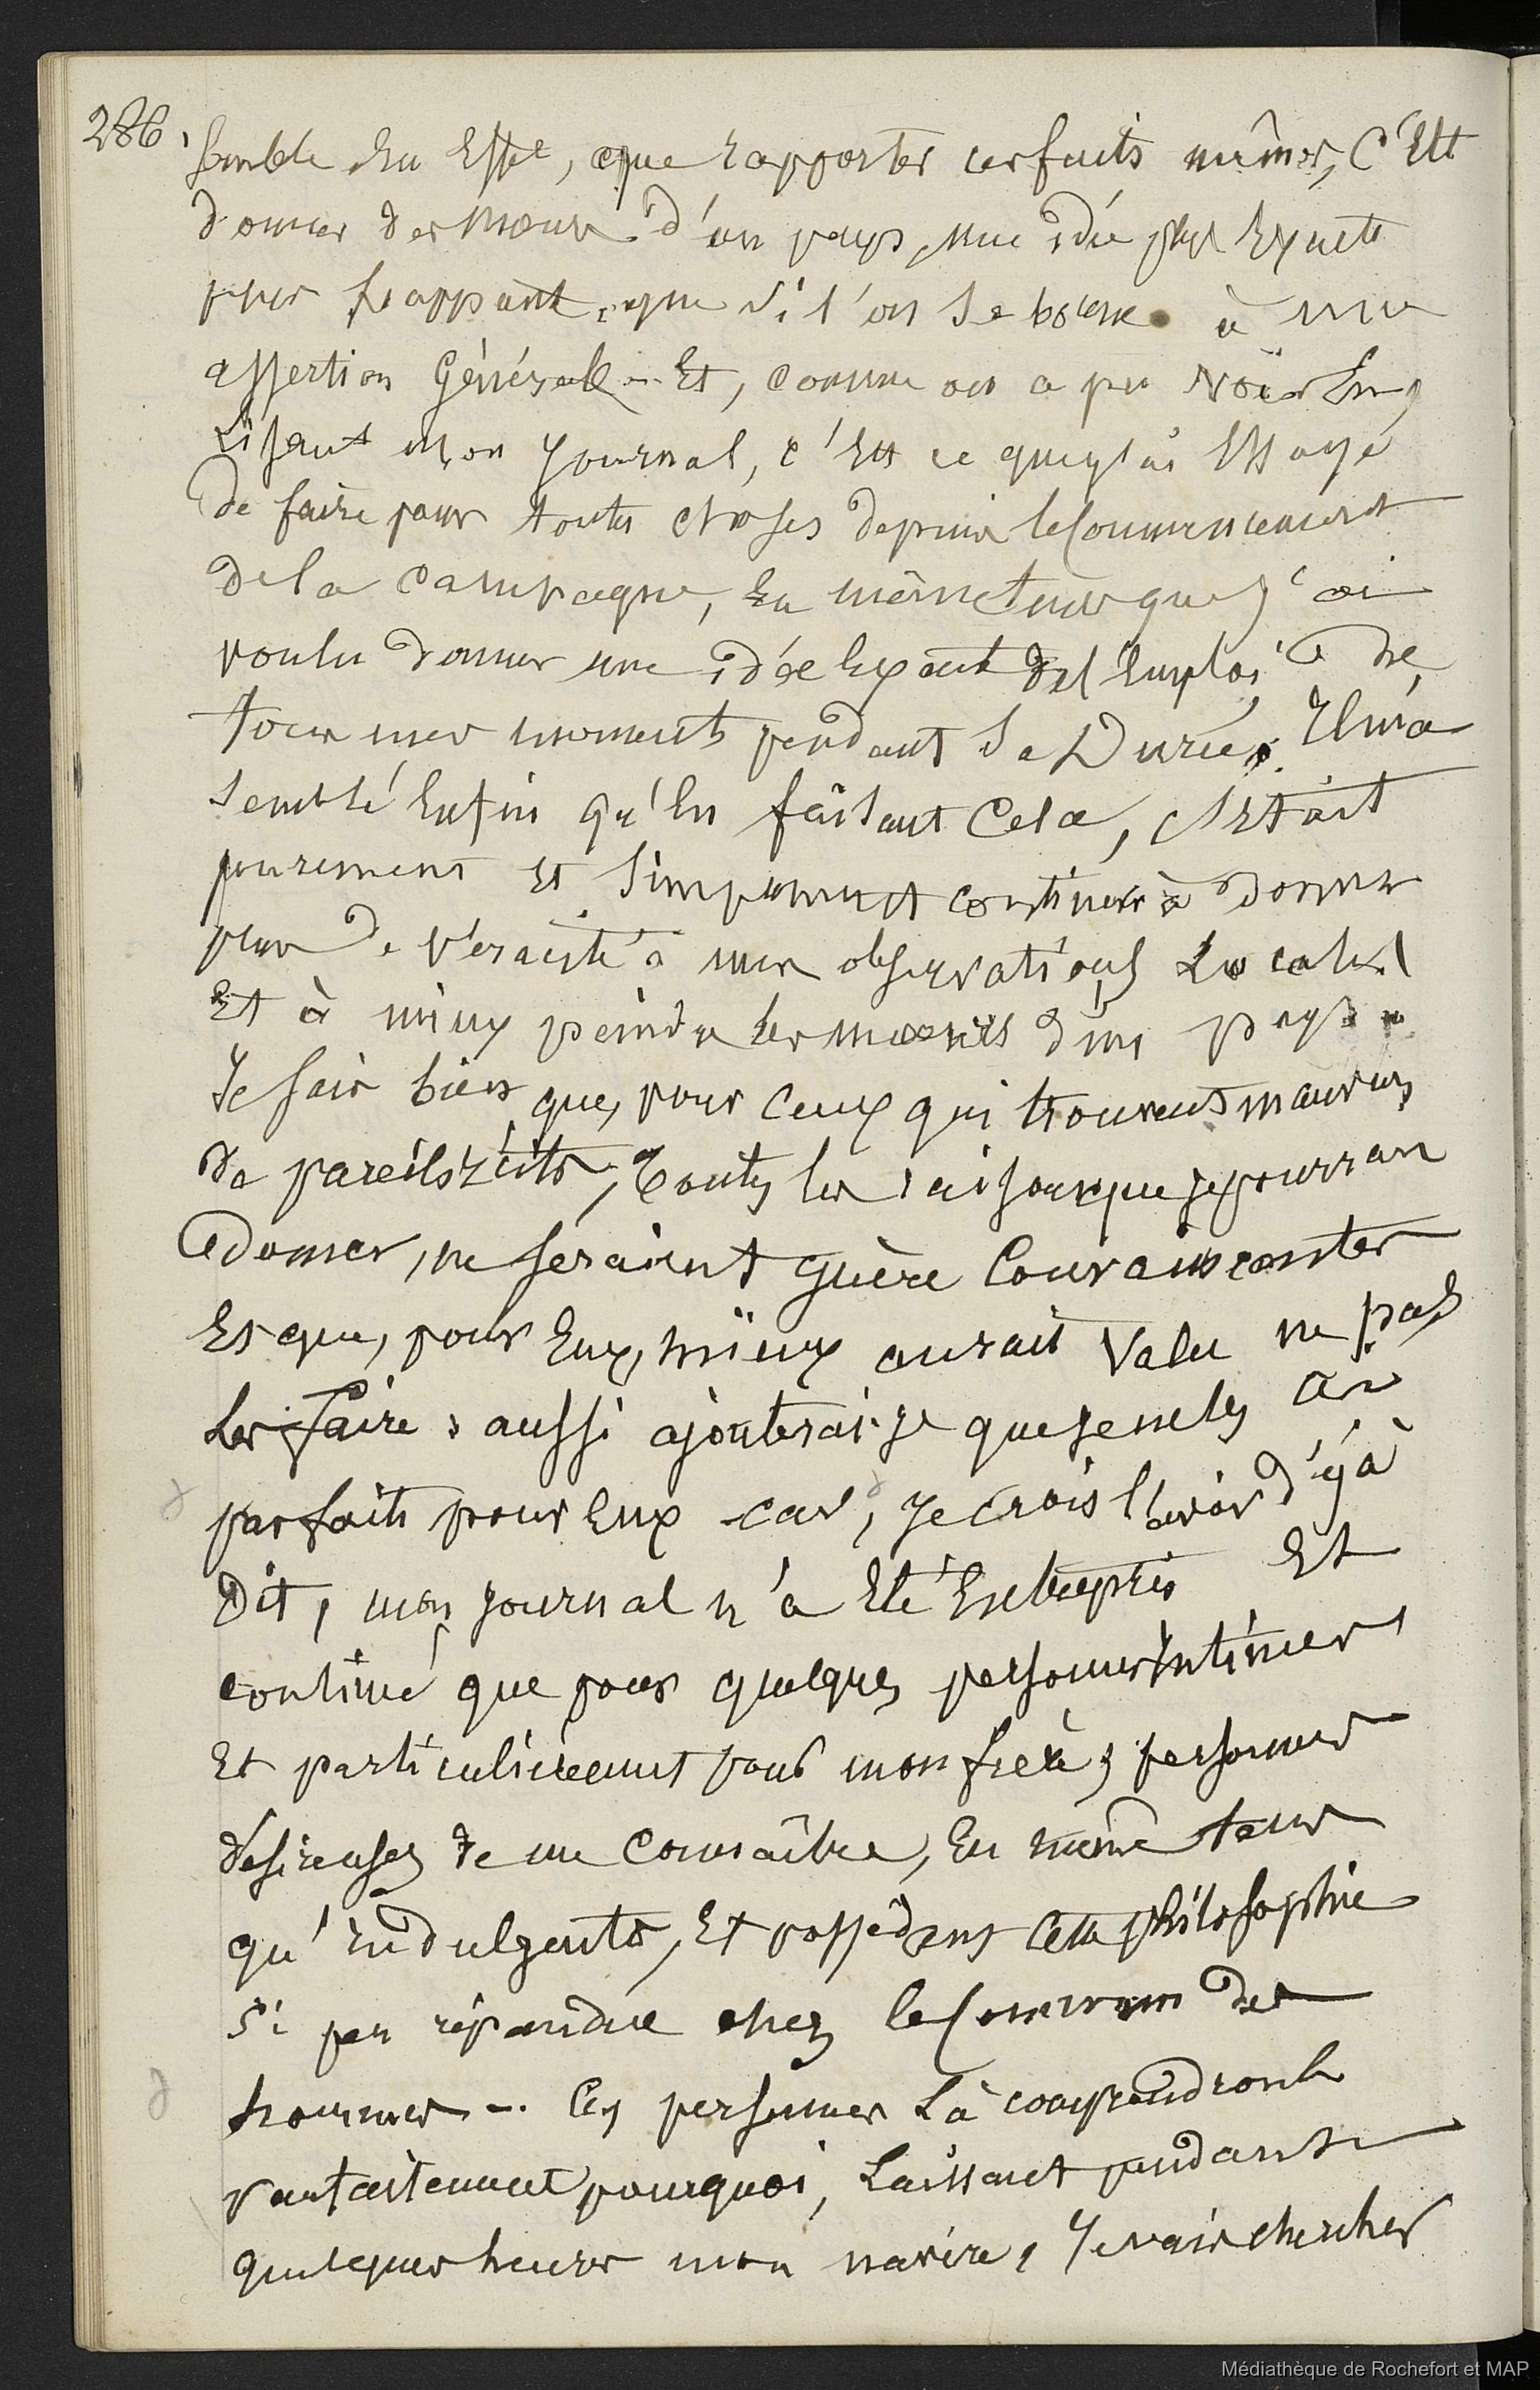 286.
semble En Effet, que rapporter ces faits mêmes, C'Est
donner des Mœurs d'un pays, une idée plus Exacte
plus frappante, que si l'on se borne à une
assertion Générale - Et, comme on a pu Voir En
Lisant mon Journal, c'Est ce que j'ai Essayé
de faire pour toutes choses depuis le Commencement
de la Campagne, En même tems que j'ai
voulu donner une idée Exacte de l'Emploi de
tous mes moments pendant sa Durée. Il m'a
semblé Enfin qu'En faisant Cela, c'Etait
purement Et simplement continuer à donner
plus de véracité à mes observations Locales
Et à mieux peindre les mœurs d'un pays -
Je sais bien que, pour Ceux qui trouvent mauvais
de pareils récits, Toutes les raisons que je pourrais
donner, ne seraient guère Convaincantes
Et que, pour Eux, mieux aurait Valu ne pas
les faire; aussi ajouterai-je que je ne les ai
pas faits pour Eux car, Je crois l'avoir déjà
Dit, mon journal n'a Eté Entrepris Et
continué que pour quelques personnes intimes
Et particulièrement pour mon frère; personnes
désireuses de me Connaître, En même tems
qu'indulgentes, Et possédant Cette philosophie
si peu répandue chez le Commun des
hommes -. Ces personnes Là comprendront
parfaitement pourquoi, Laissant pendant
quelques heures mon navire, Je vais chercher
Médiathèque de Rochefort et MAP